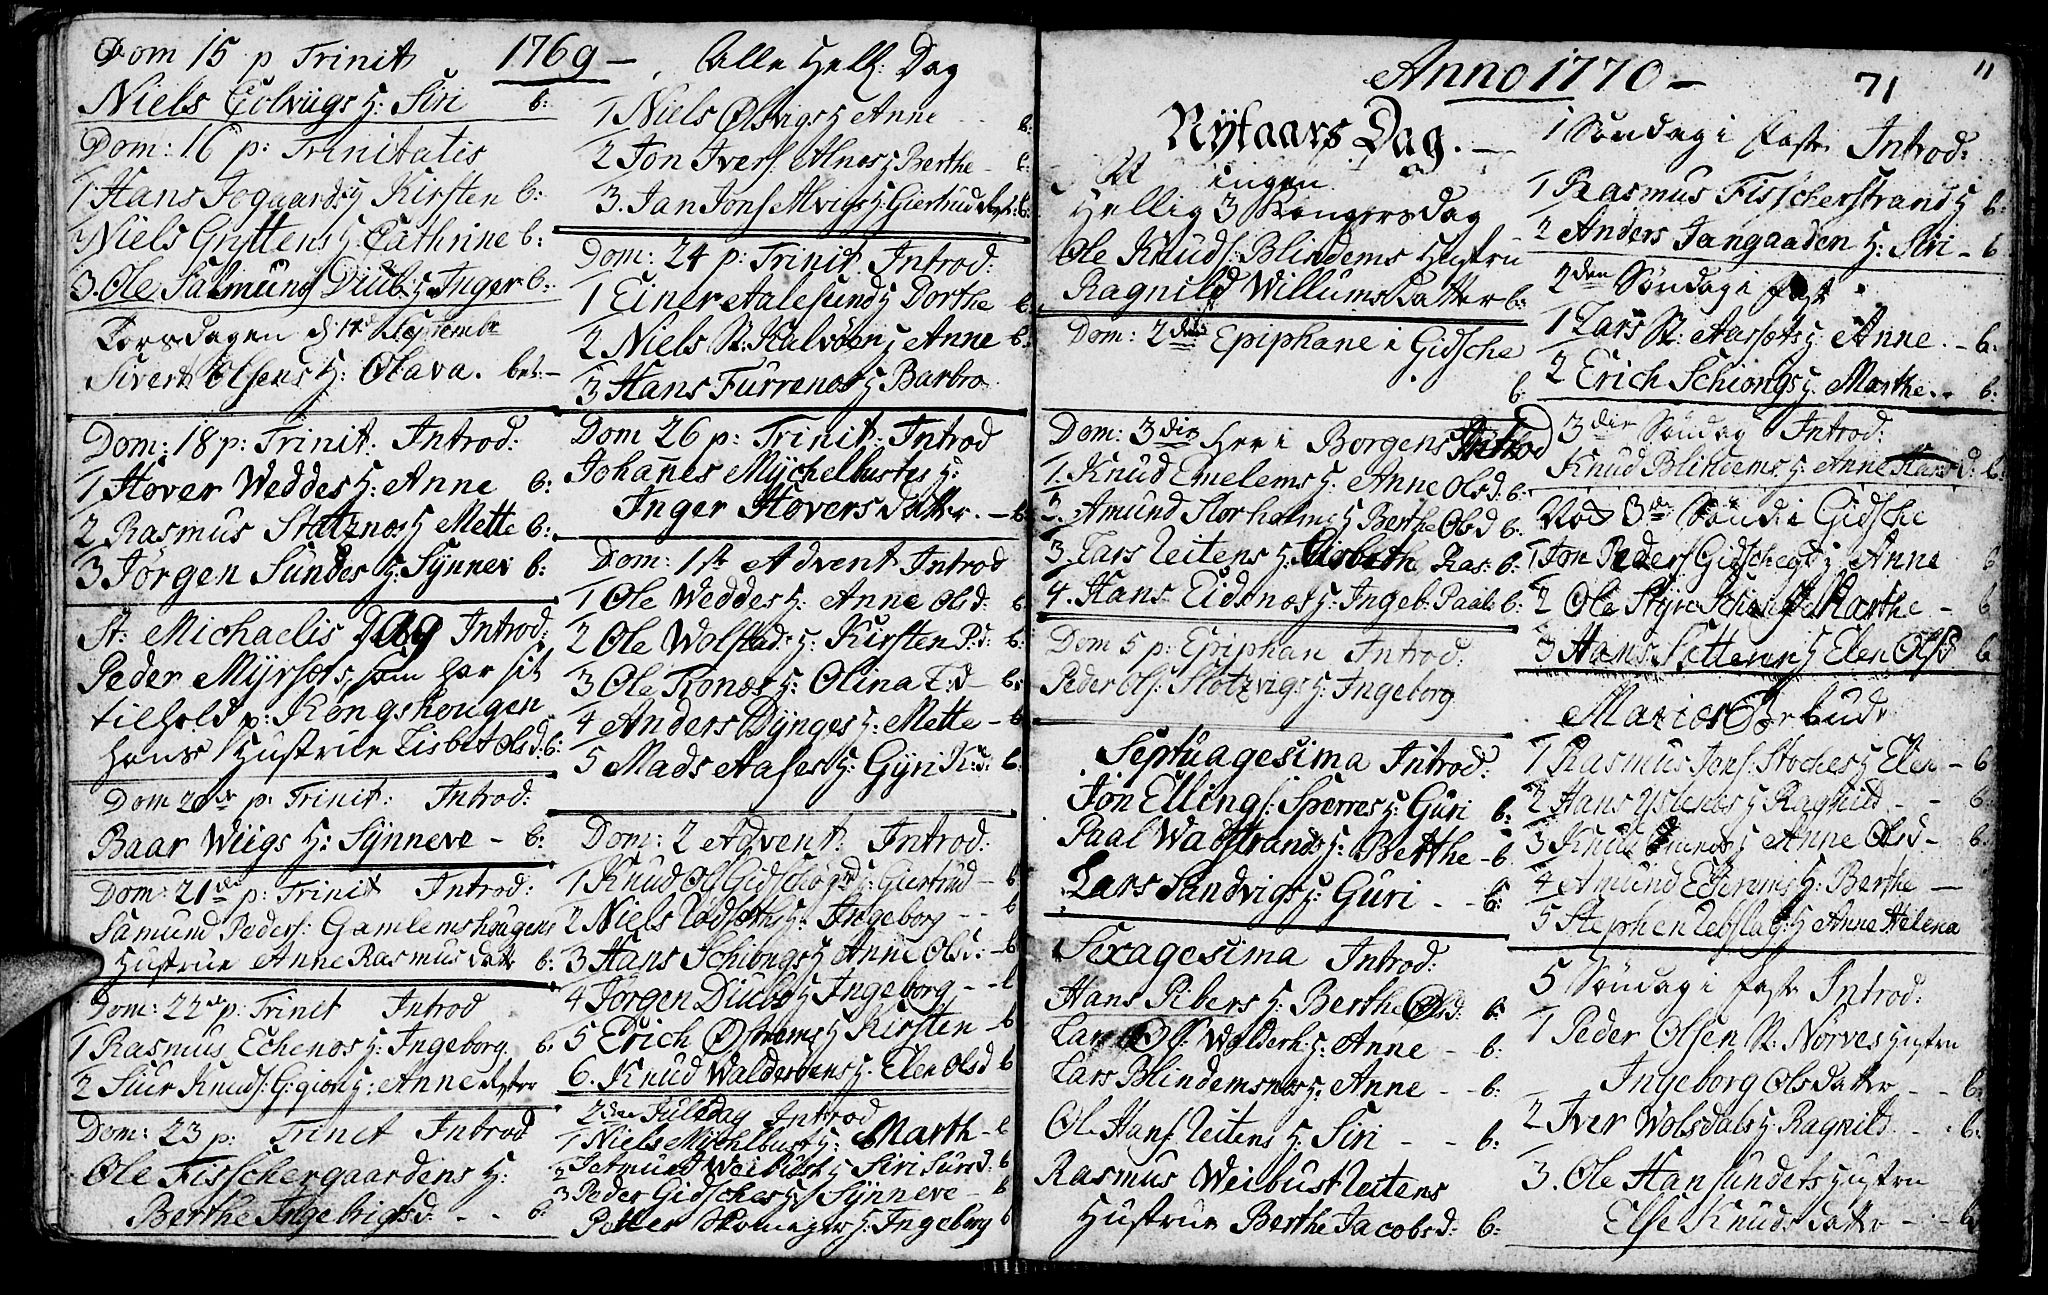 Dom 15 p Trinit 1769 –
Niels Eolviigs H: Siri b:
Dom: 16 p: Trinitatis
1 Hans Jogaards H Kirsten b:
2 Niels Gryttens H: Cathrine b:
3. Ole Salmunds Diub: H Inger b:
Torsdagen d 14 Septembr
Sivert Olsens H: Olava. bet:–
Dom: 18 p: Trinit: Introd:
1 Hover Weddes H: Anne b:
2 Rasmus Statznos H Mette b:
3 Jörgen Sundes H: Synnev b:
St: Michaelis Dag Introd:
Peder Myrsets, som har sit
tilhold p: Kongshougen
hans Hustrue Lisbet Olsd: b:
Dom 20de p: Trinit: Introd:
Baar Wiigs H: Synneve – b:
Dom: 21de p: Trinit Introd:
Samund Peders: Gamlemshougens
Hustrue Anne Rasmusdattr b:
Dom: 22de p: Trinit Introd
1 Rasmus Echenos H: Ingeborg b:
2 Siur Knuds: H: Anne
Dom: 23 p: Trinit Introd
Ole Fisschergaardens H:
Berthe Ingebrigtsd: - - b:
Alle Hell: Dag
1 Niels Ølsvigs H Anne - - b:
2 Jon Ivers: Alnes H Berthe – b:
3. Jan Jons Alvigs H: Giertrud b:
Dom: 24 p: Trinit. Introd:
1 Einer Aalesund H Dorthe – b
2 Niels St: Kalvöen H Anne b:
3 Hans Furrenos H Barbro
Dom 26 p: Trinit: Introd
Johannes Mychelbustes H:
Inger Hoversdatter. – b
Dom: 1ste Advent Introd
1 Ole Weddes H: Anne Olsd: b
2 Ole Wolstad: H: Kirsten P:d: b:
3 Ole Tonos H: Olina T:d – b:
4 Anders Dynges H: Mette – b
5 Mads Aases H: Gyri K:d: b:
Dom: 2 Advent: Introd:
1 Knud Ols Gidschögrd: H: Giertrud – b
2 Niels Rödseths H: Ingeborg - - b
3 Hans Schiongs H Anne Olsd: – b
4 Jörgen Diubs H Ingeborg - - b
5 Erich Østrems H Kirsten – b
6. Knud Waldervens H: Elen Olsd b
2den Juledag Introd
1 Niels Michlbust H: Marth – b
2 Jetmund Weibust H Siri Siursd: b
3 Peder Gidsches H: Synneve – b
Petter Skomager H: Ingeborg b
Anno 1770 –
71
11
Nytaars Dag. –
ingen
Hellig 3 Kongersdag
Ole Knuds: Blindems Hustru
Ragnild Willumsdatter b:
Dom: 2den Epiphane i Gidsche
b:
Dom: 3die her i Borgens Introd
1. Knud Emelems H: Anne Olsd: b:
2. Amund Storholms H Berthe Olsd b:
3. Lars Leitens H: Lisbeth Ras: b:
4. Hans Eidsnos H: Ingeb: Paals b:
Dom 5 p: Epiphan Introd:
Peder Ols: Slotzvigs H: Ingeborg
Septuagesima Introd:
Jon Ellings: Sperres H: Guri b:
Paal Wadstrands H: Berthe – b
Lars Sandvigs H: Guri - - b:
Sexagesima Introd:
Hans Ribers H: Berthe Olsd: b:
Lars Ols: Walderh: H: Anne – b:
Lars Blindemsnos H: Anne - - b:
Ole Hans: Leitens H: Siri - - b:
Rasmus Weibust Leitens
Hustrue Berthe Jacobsd: b:
1 Söndag i faste Introd:
1 Rasmus Fisscherstrand H b:
2 Anders Jangaarden H: Siri – b
2den Söndag i fast
1 Lars St: Aarsets H: Anne. – b:
2 Erich Schiongs H: Marthe. b:
3die Söndag Introd:
Knud Blindems H: Anne Hansd: b:
3de Sönd: i Gidsche
1 Jon Peders Gidschegd H Anne b
2 Ole Styre Marthe – b
3 Hans Settems H Elen Olsd b
Mariæ Bebud:
1 Rasmus Jons: Stoches H Elen – b
2 Hans Ystenos H Ragnild - - b:
3 Knud H Anne Olsd – b:
4 Amund Echrems H: Berthe –
5 Stephen Lebsla: H Anne Helena
5 Söndag i faste Introd:
1 Peder Olsen St: Norves Hustru
Ingeborg Olsdattr - - b:
2 Iver Wolsdals H: Ragnild - - b:
3. Ole Hansundets Hustru
Else Knudsdattr - - b